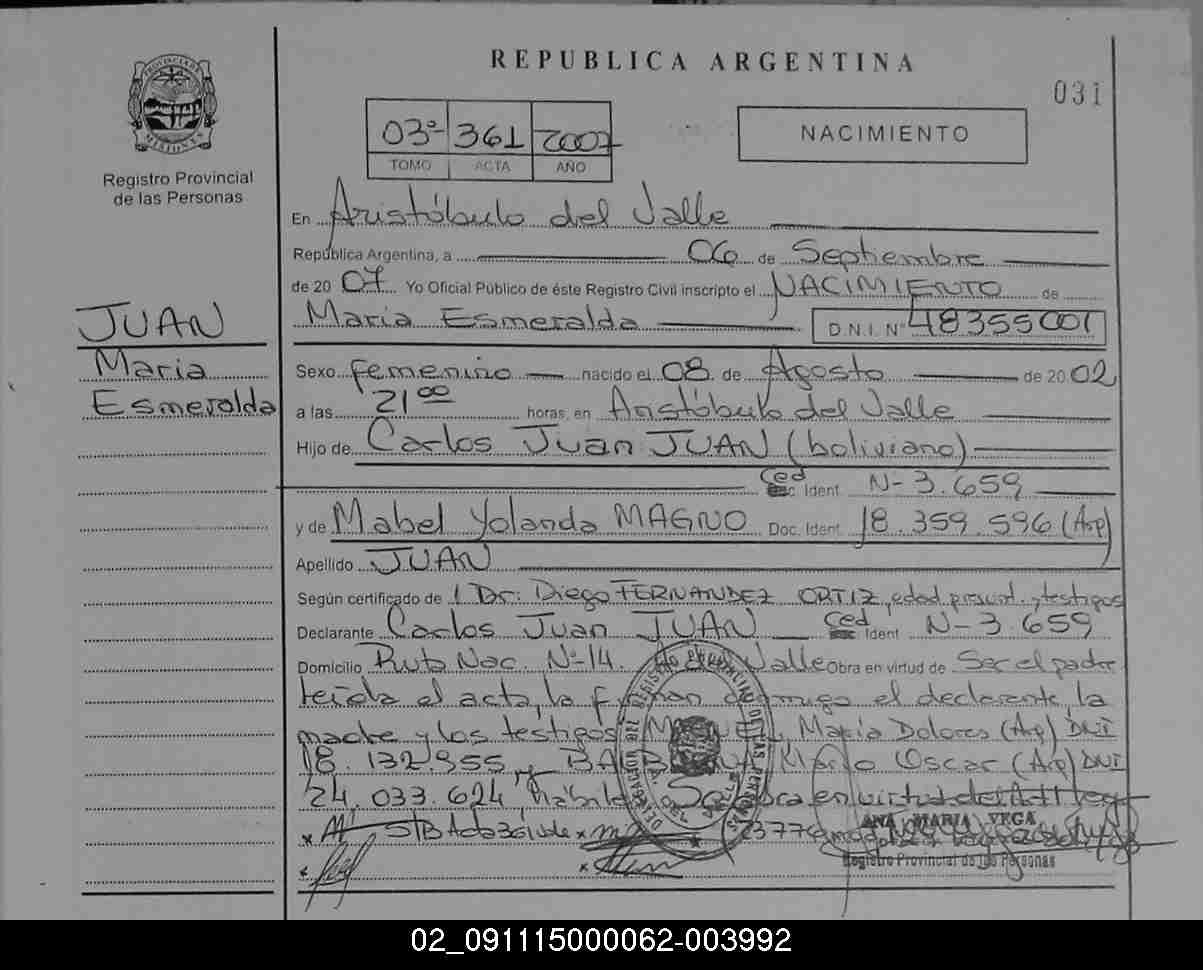 REPUBLICA ARGENTINA
031
PROVINCIA DE MISIONES
Registro Provincial
de las Personas
03º- 361 2007
TOMO ACTA AÑO
NACIMIENTO
En Aristóbulo del Valle
República Argentina, a 06 de Septiembre
de 20 07 Yo Oficial Público de éste Registro Civil inscripto el NACIMIENTO de
Maria Esmeralda D.N.I. Nº 48355001
JUAN
Maria
Esmeralda
Sexo femenino nacido el 08 de Agosto de 20 02
a las 21 00 horas, en Aristóbulo del Valle
Hijo de Carlos Juan JUAN (boliviano)
Ced Ident. N- 3.659
y de Mabel Yolanda MAGNO Doc. Ident. 18.359.596 (Arg)
Apellido JUAN
Según certificado de Dr: Diego FERNANDEZ ORTIZ, edad presunt. y testigos
Declarante Carlos Juan JUAN Ced Ident N-3.659
Domicilio Ruta Nac. Nº 14. Valle Obra en virtud de Ser el padre
leída el acta, la firman conmigo el declarante, la
madre y los testigos María Dolores (Arg) DNI
18.132.955 y Mario Oscar (Arg) DNI
24.033.624, obra en virtud del
ANA MARIA VEGA
Registro Provincial de las Personas
02_091115000062-003992